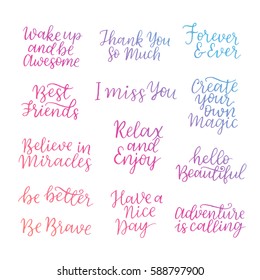 Wake up
and be
Awesome
Thank You
so Much
Forever
& Ever
Best
Friends
I miss You
Create
Your own
Magic
Believe in
Miracles
Relax
and
Enjoy
hello
Beautiful
be better
Be Brave
Have a
Nice
Day
Adventure
is calling
shutterstock.com · 588797900